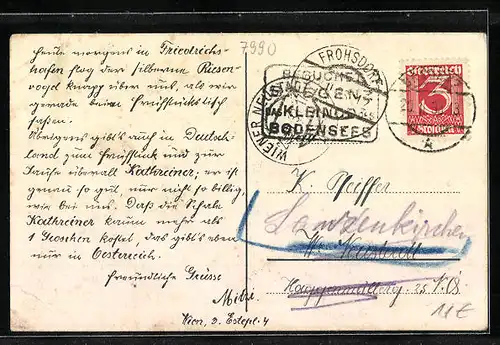 7990
Heute morgens in Friedrichs-
hafen flog der silberne Riesen-
vogel knapp über uns, als wir
gerade beim Frühstückstisch
saßen.
Übrigens gibt's auch in Deutsch-
land zum Frühstück und zur
Jause überall Kathreiner; er ist
genau so gut, nur nicht so billig,
wie bei uns. Daß die Schale
Kathreiner kaum mehr als
1 Groschen kostet, das gibt's eben
nur in Oesterreich.
Freundliche Grüsse
Mitzi
Wien, 2.
FROHSDORF
BESUCHET
BREGENZ
KLEINOD
BODENSEES
WIENER NEUSTADT
Österreich
3
Groschen
A
K. Pfeiffer
Lanzenkirchen
Wr. Neustadt
11€